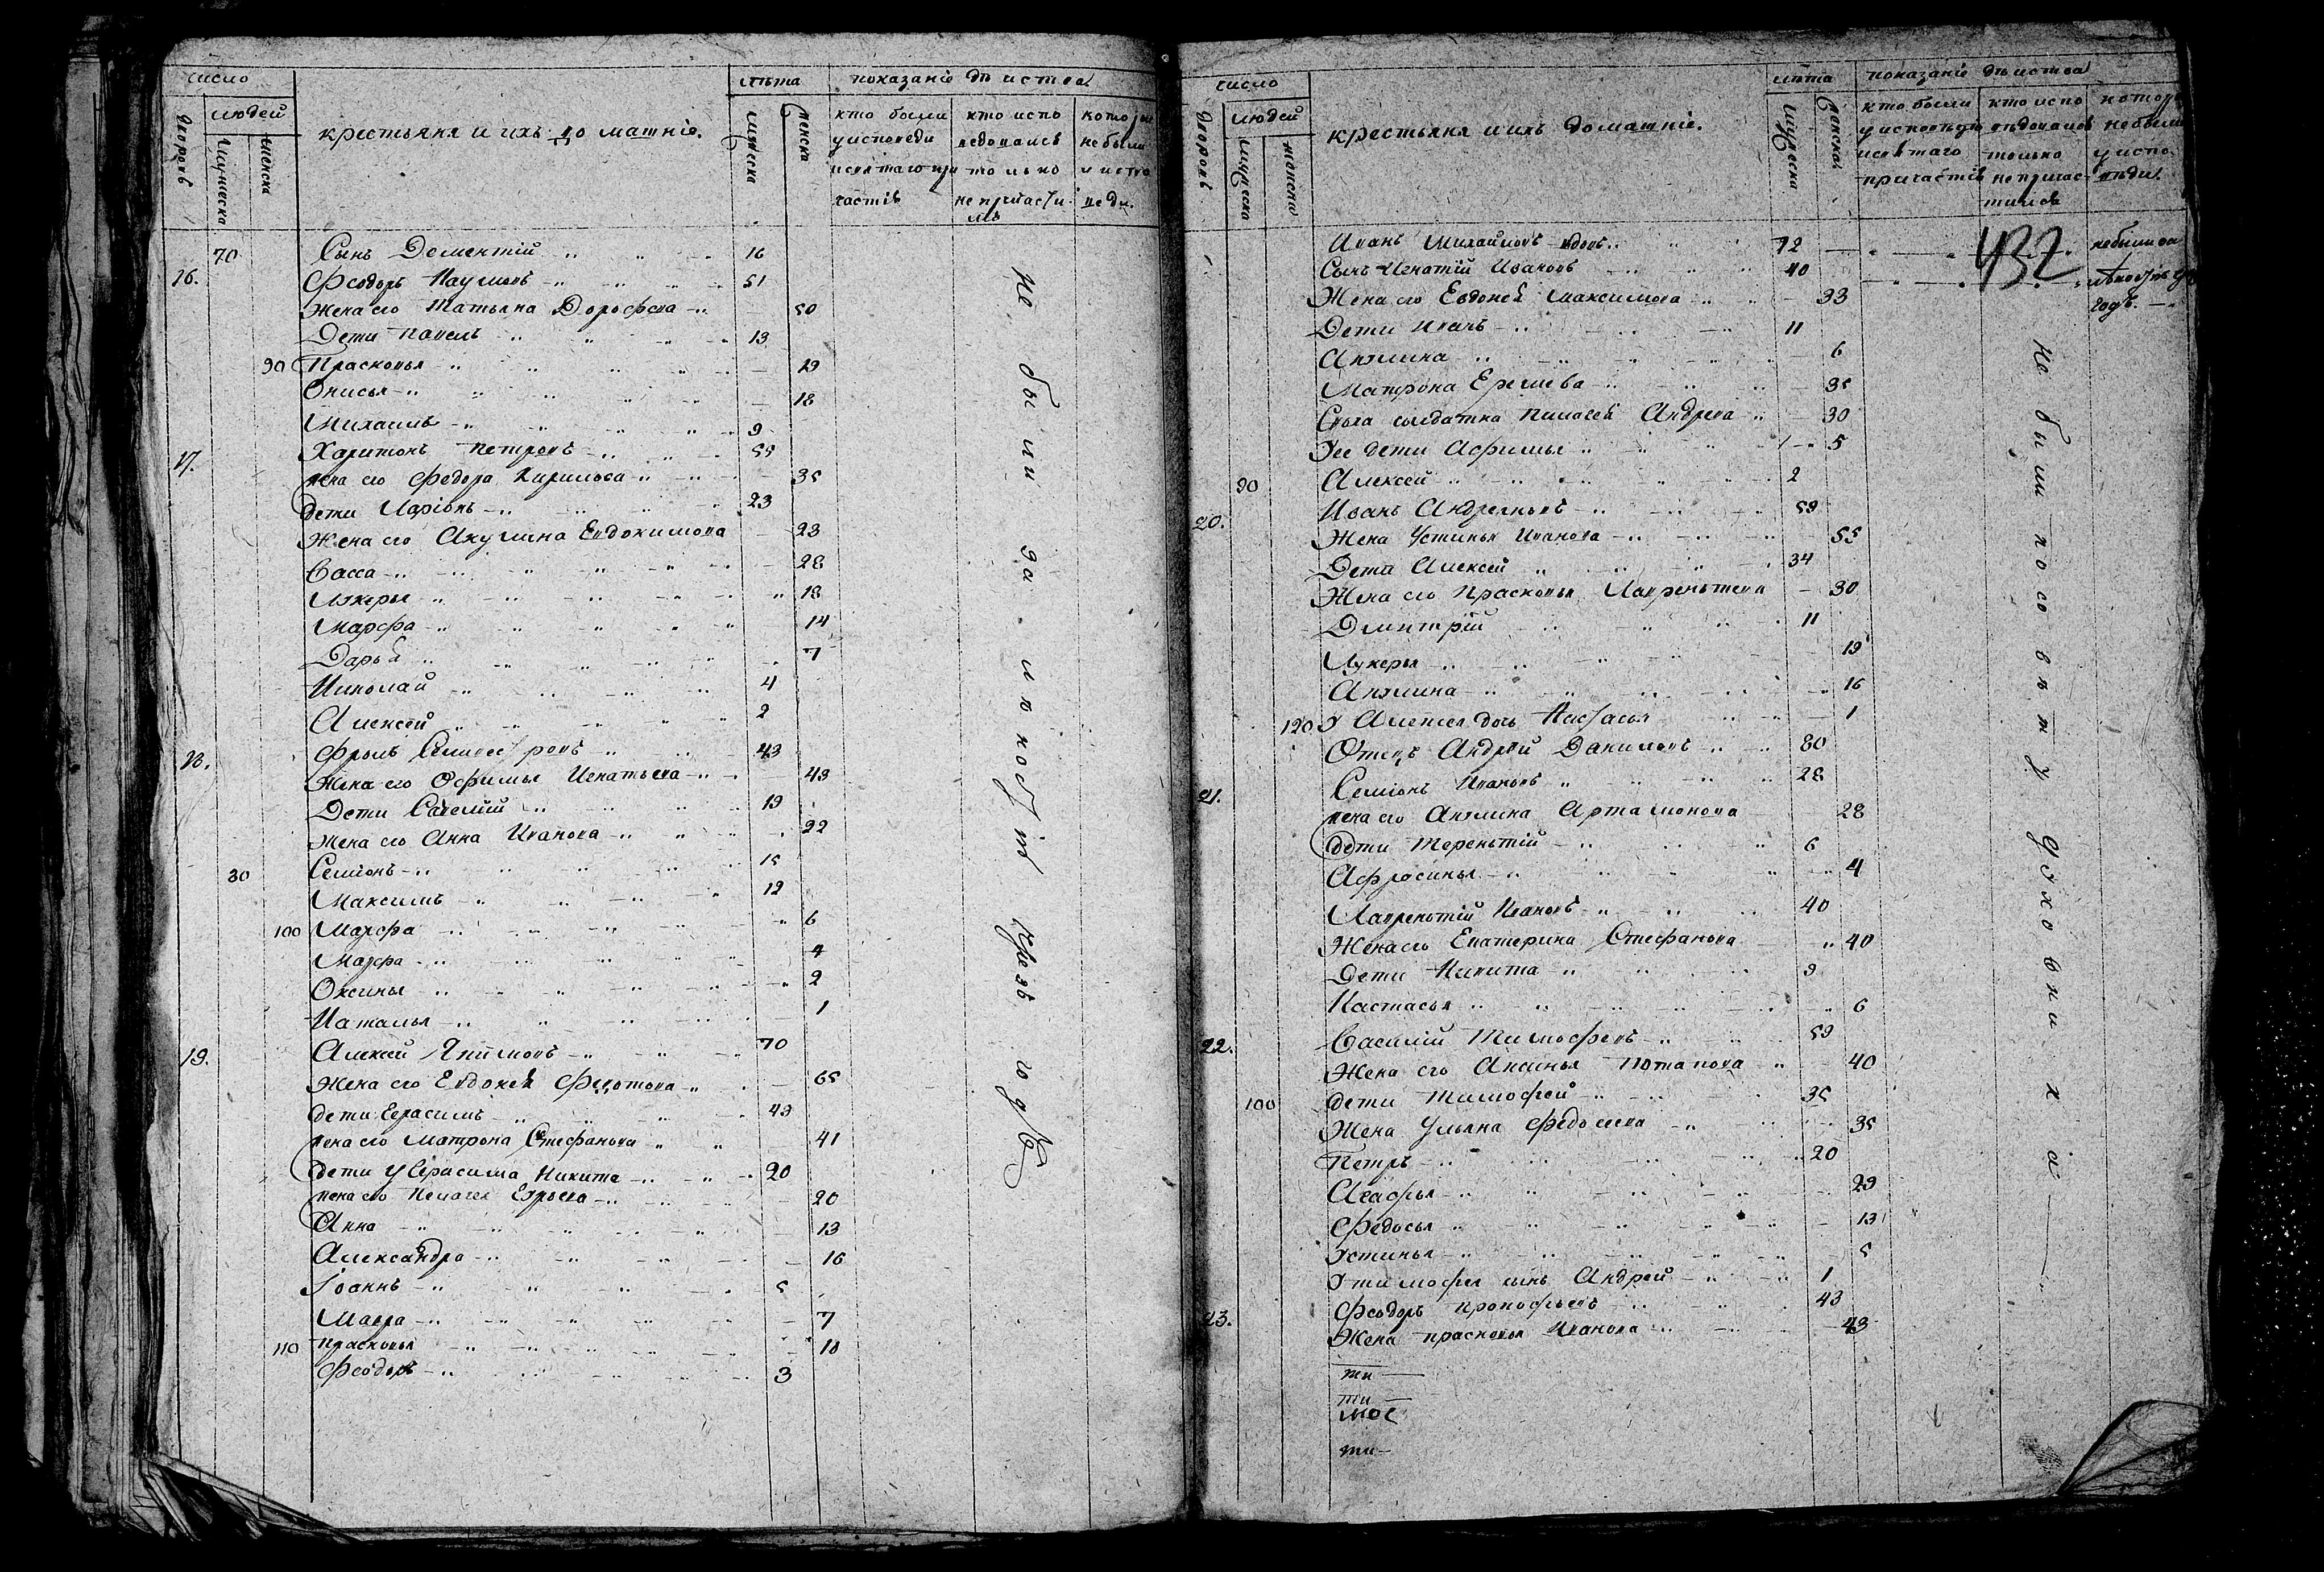 число
людей
дворовъ
мужеска
женска
крестьяня и ихъ домашніе.
лѣта
мужеска
женска
показаніе дѣйства
кто были
у исповеди
и святаго при
частія
кто испо
ведовался
только
не причасти
лъ
которые
не были
испо
веди.
70 Сынъ Дементій 16
16. Феодоръ Наумовъ 51
Жена его Татьяна Дорофеева 50
Дети Павелъ 13
90 Прасковья 19
Онисья 18
Михаилъ 9
17. Харитонъ Петровъ 55
жена его Федора Кирилова 35
дети Ларіонъ 23
Жена его Акулина Евдокимова 23
Васса 28
Лукерья 18
Марфа 14
Дарья 7
Николай 4
Алексей 2
18. Фролъ Селивестровъ 43
Жена его Офимья Игнатьева 43
Дети Савелий 19
Жена его Анна Иванова 22
80 Семіонъ 15
Максимъ 12
100 Марфа 6
Марфа 4
Оксинья 2
Наталья 1
19. Алексей 70
Жена его Евдокея Федотова 65
дети Герасимъ 43
жена его Матрона Стефанова 41
дети у Герасима Никита 20
жена его Пелагея 20
Анна 13
Александра 16
Іоаннъ 5
Мавра 7
110 Прасковья 10
Феодоръ 3
Не были за лѣностію чрезъ годъ
число
людей
дворовъ
мужеска
женска
крестьяня и ихъ домашніе.
лѣта
мужеска
женска
показаніе дѣйства
кто были
у исповеди
и святаго
причастія
кто испо
ведовался
только
не причас-
тился
которые
не были
у испо-
веди.
432
Иванъ Михайловъ вдовъ 72 не были за
Сынъ Игнатій Ивановъ 40
Жена его Евдокея Максимова 33 годъ.
Дети Иванъ 11
Акилина 6
Матрона 35
солдатка Пилагея Андреева 30
Ее дети Афимья 5
90 Алексей 2
20. Иванъ Андреяновъ 59
Жена Устинья Иванова 55
Дети Алексей 34
Жена его Прасковья Лаврентьева 30
Дмитрій 11
Лукерья 19
Акилина 16
120 У Алексея дочь Настасья 1
Отецъ Андрей Даниловъ 80
21. Семіонъ Ивановъ 28
жена его Акилина Артамонова 28
дети Терентій 6
Афросинья 4
Лаврентій Ивановъ 40
Жена его Екатерина Стефанова 40
Дети Никита 9
Настасья 6
22. Василій Тимофеевъ 59
Жена его Аксинья Потапова 40
100 дети Тимофей 35
Жена Ульяна Федосеева 35
Петръ 20
Агафья 29
Федосья 13
Устинья 5
У Тимофея сынъ Андрей 1
23. Феодоръ Прокофьевъ 43
Жена Прасковья Иванова 43
ти
ти
мос
ти
Не были по совѣту духовника